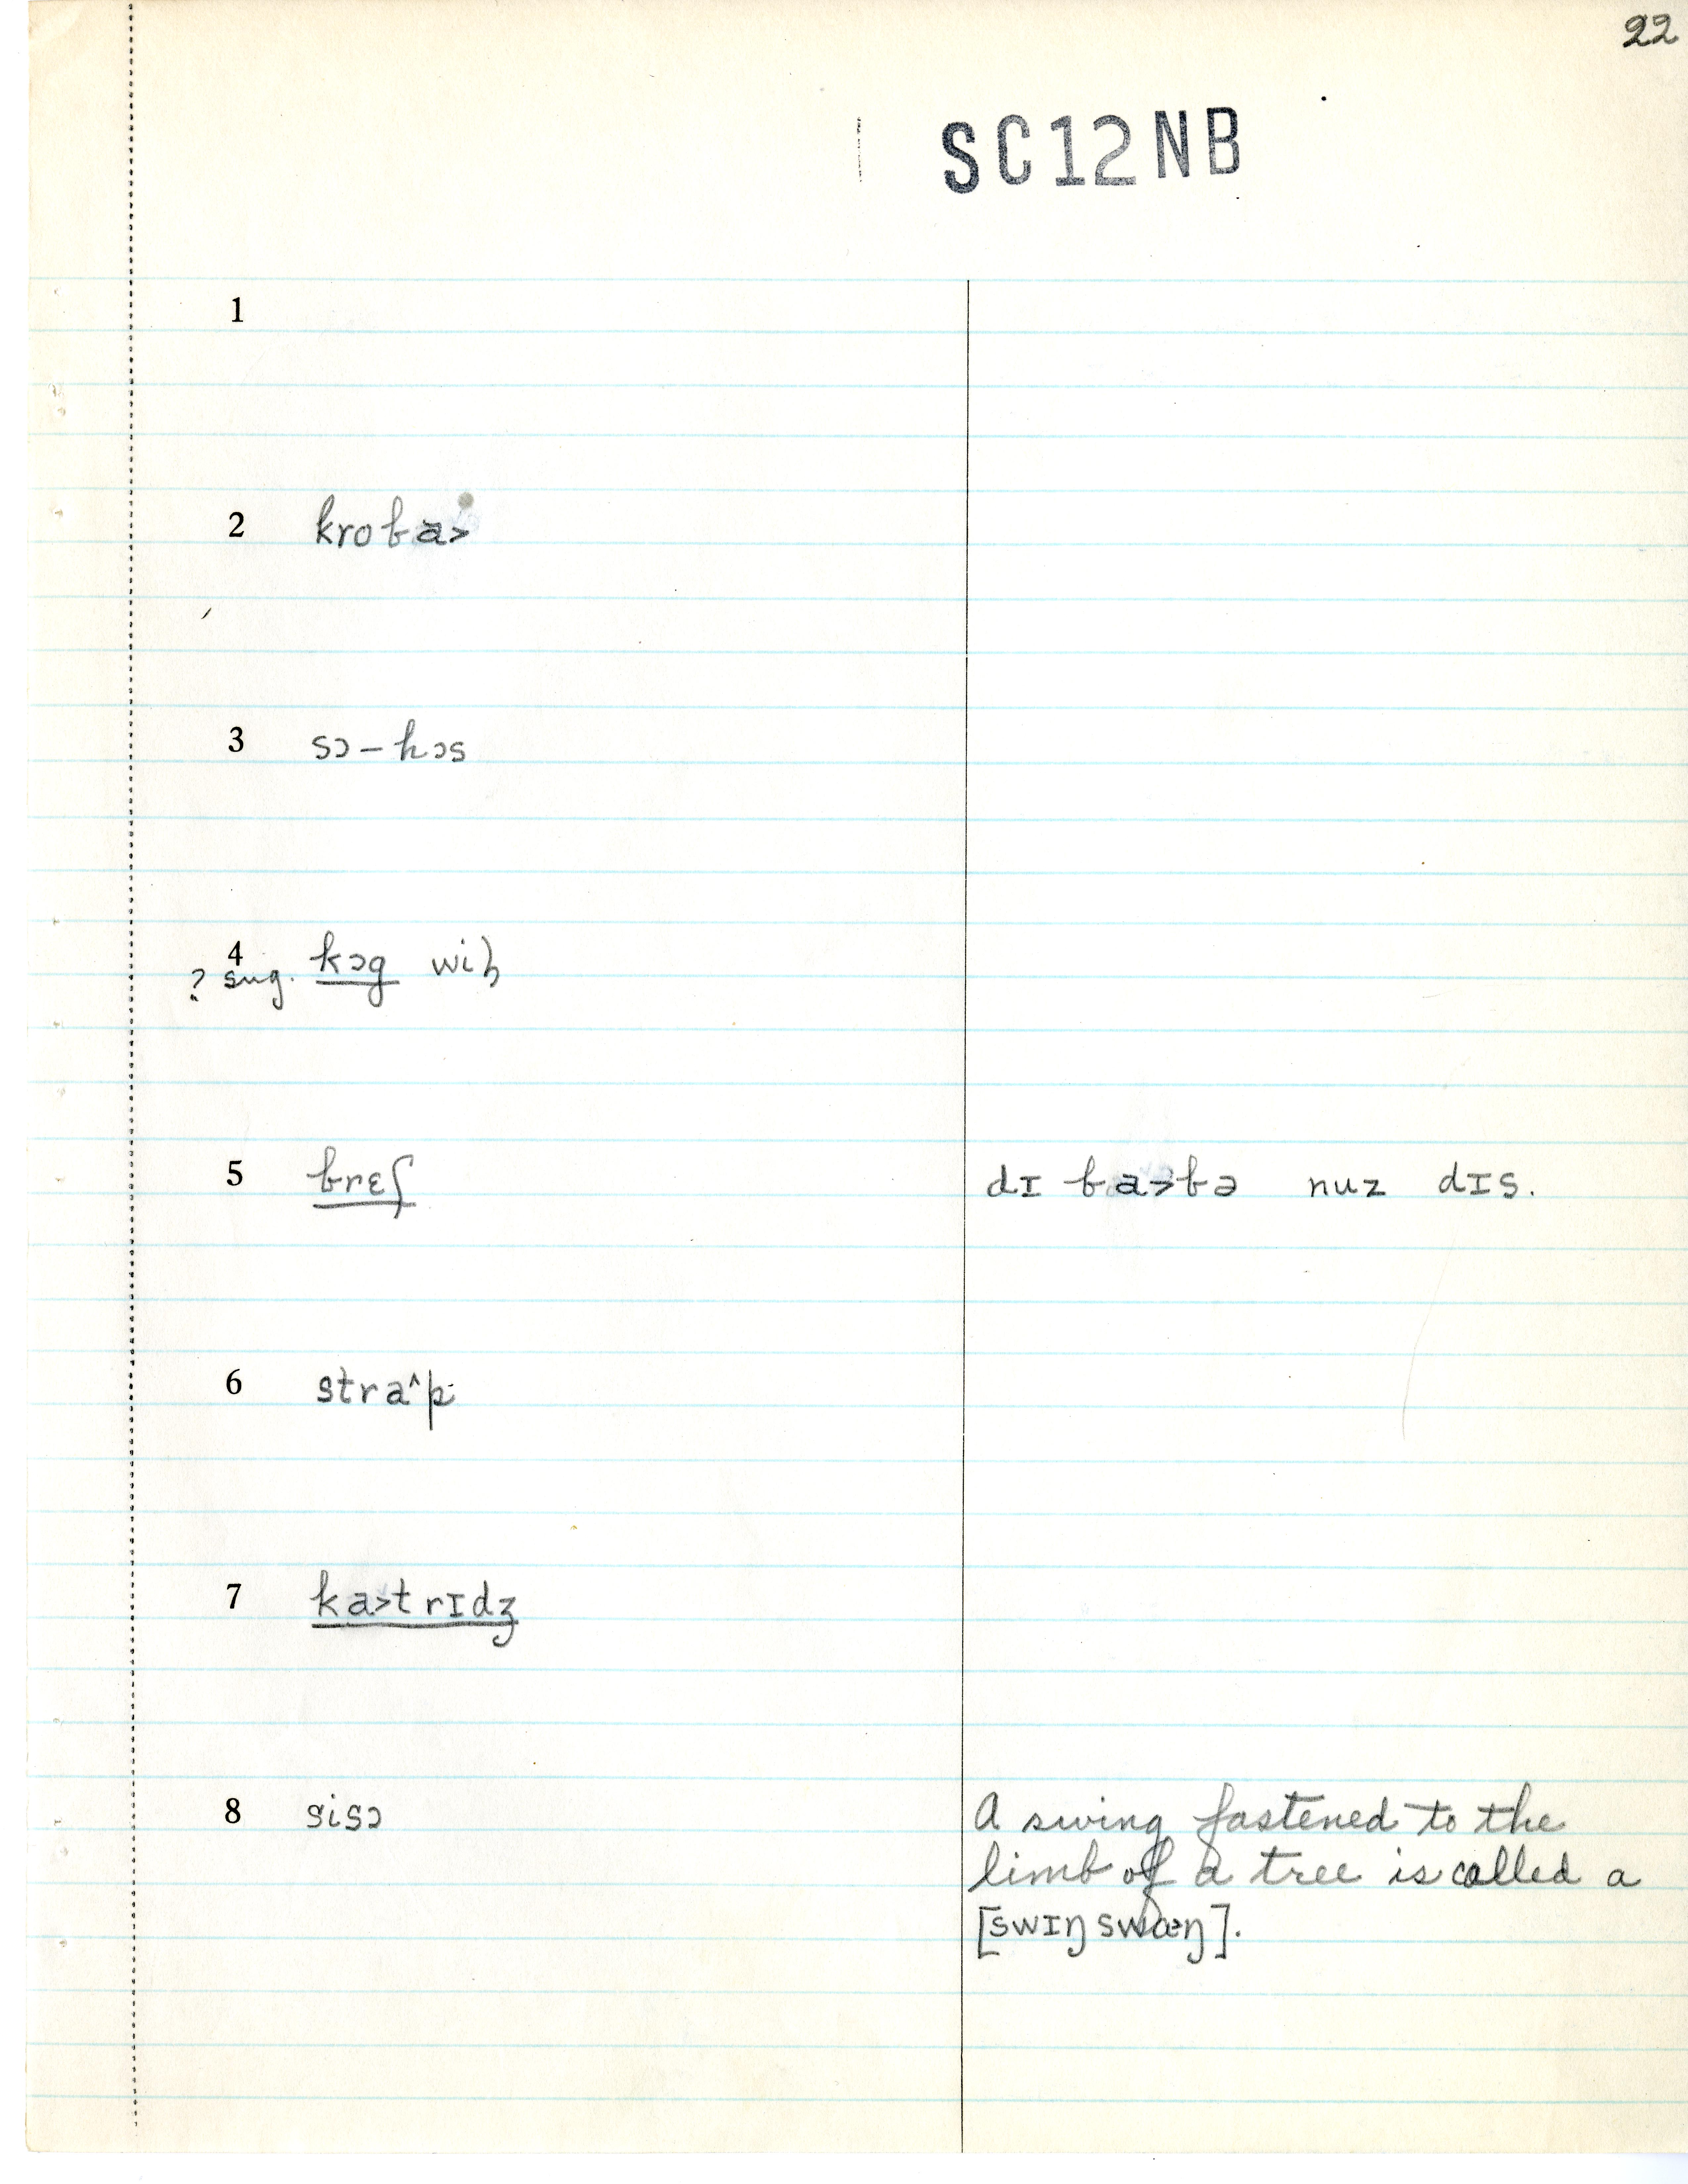 22
SC12NB
1
2 kroba˃
3 sɔ–hɔs
4 ? sug. kɔg
5 brɛʃ dɪ ba˃bə nuz dɪs.
6 straˆp
7 ka˃trɪdʒ
8 sisɔ A swing fastened to the
limb of a tree is called a
[swɪŋ swæŋ].